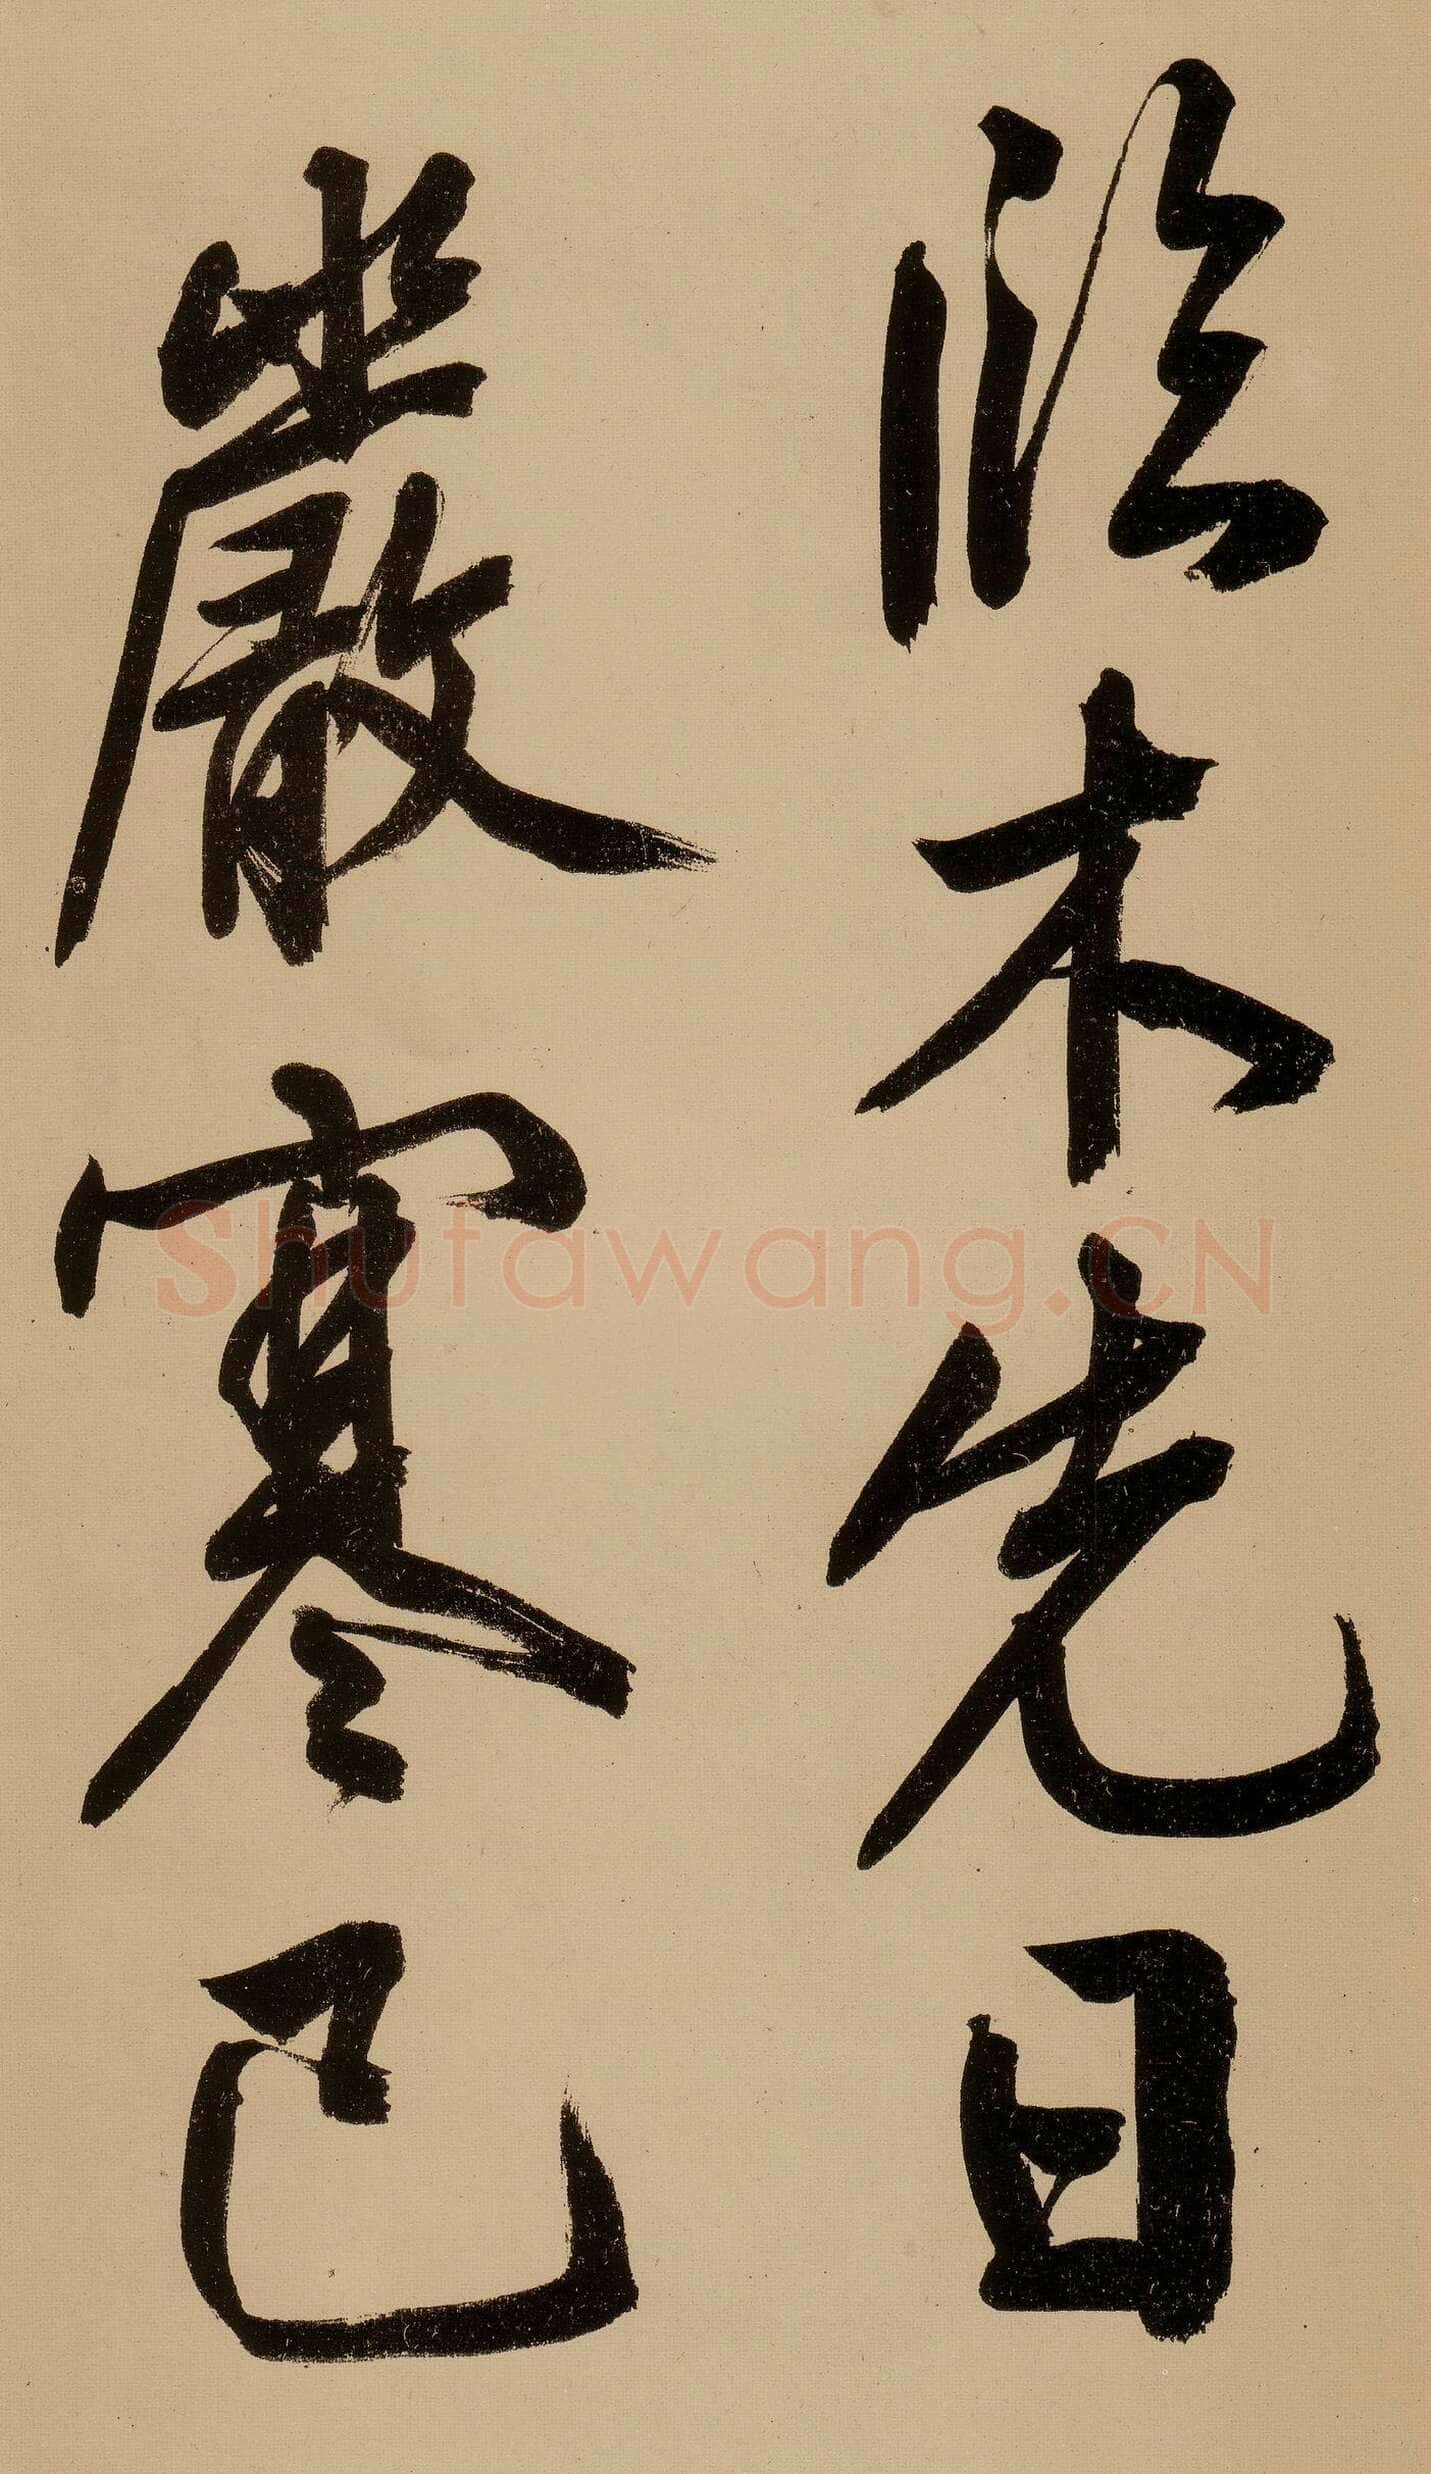 臨木先日
嚴寒已
Shufawang.CN